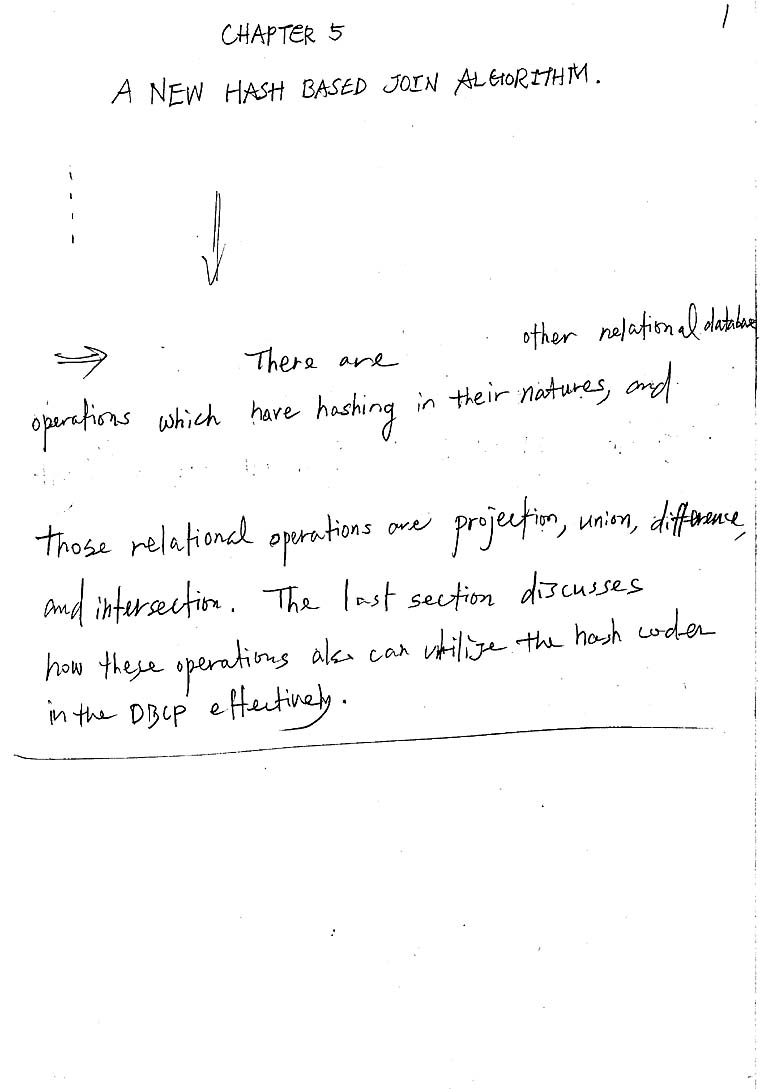 1
CHAPTER 5
A NEW HASH BASED JOIN ALGORITHM.
There are other relational database
operations which have hashing in their natures, and
those relational operations are projection, union, difference,
and intersection. The last section discusses
how these operations also can utilize the hash coder
in the DBCP effectively.